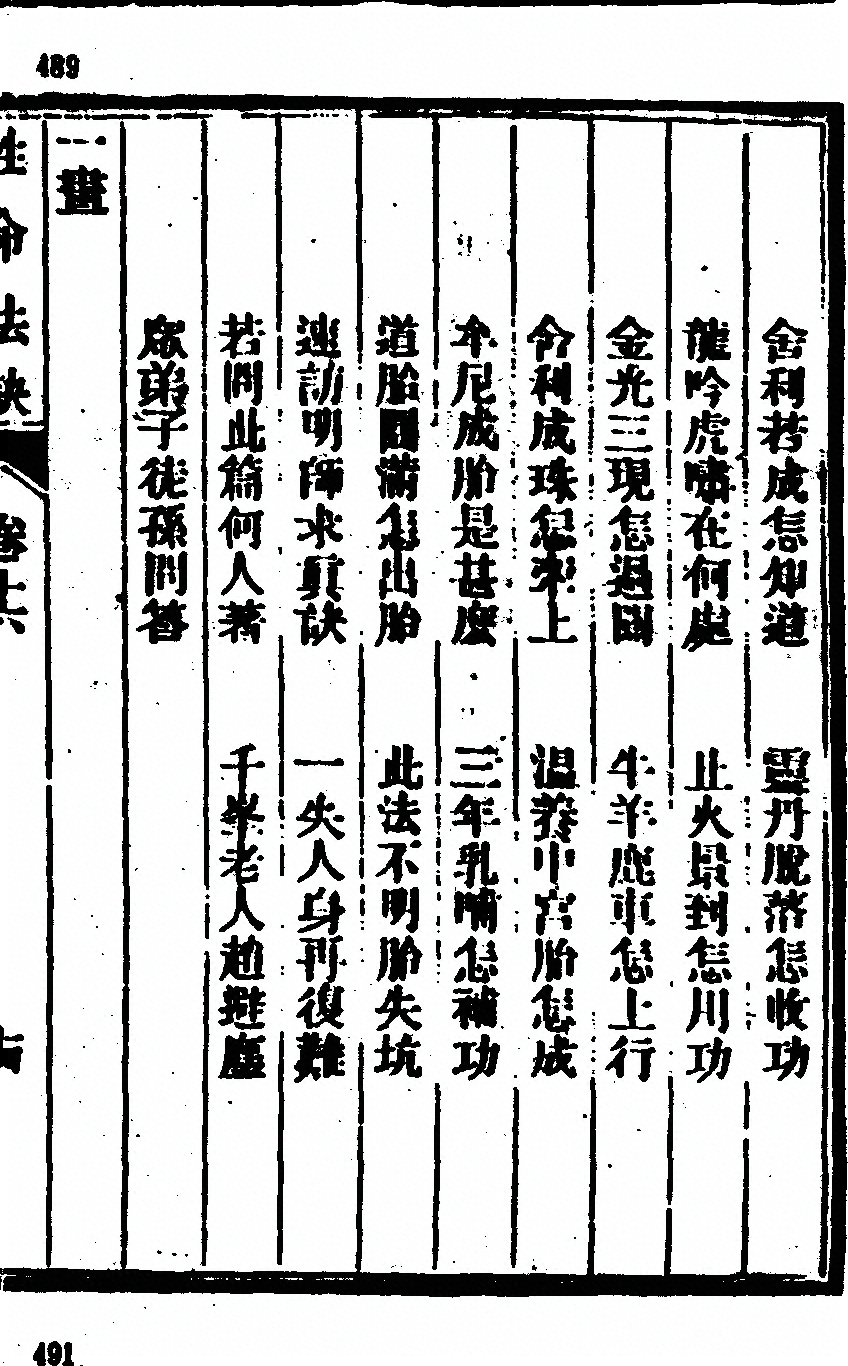 489
舍利若成怎知道 靈丹脫落怎收功
龍吟虎嘯在何處 止火景到怎用功
金光三現怎過關 牛羊鹿車怎上行
舍利成珠怎來上 溫養中宮胎怎成
牟尼成胎是甚麼 三年乳哺怎補功
道胎圓滿怎出胎 此法不明胎失坑
速訪明師求眞訣 一失人身再復難
若問此篇何人著 千峯老人趙避塵
眾弟子徒孫問答
一畫
性命法訣 卷十六
491